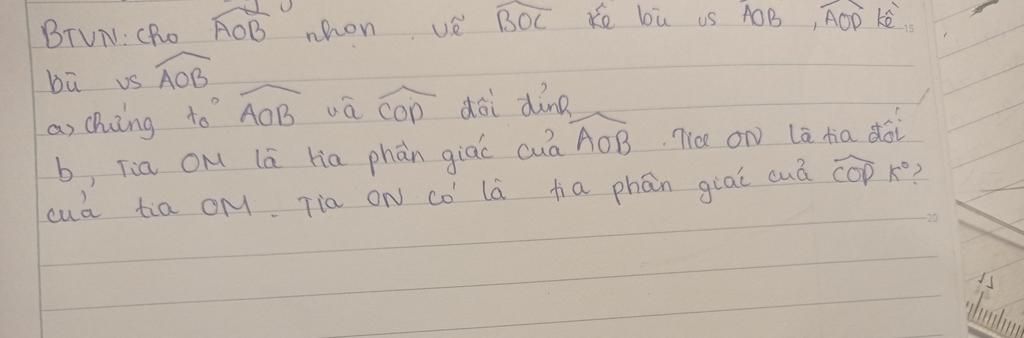 BTVN: Cho AOB nhọn. vẽ BOC kề bù vs AOB, AOD kề
bù vs AOB
a, chứng tỏ AOB và COD đối đỉnh
b, Tia OM là tia phân giác cuả AOB. Tia ON là tia đối
cuả tia OM. Tia ON có là tia phân giác cuả COD K°?
15
20
11